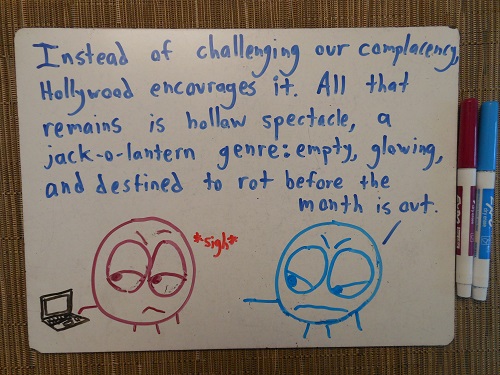 Instead of challenging our complacency,
Hollywood encourages it. All that
remains is hollow spectacle, a
jack-o-lantern genre: empty, glowing,
and destined to rot before the
month is out.
*sigh*